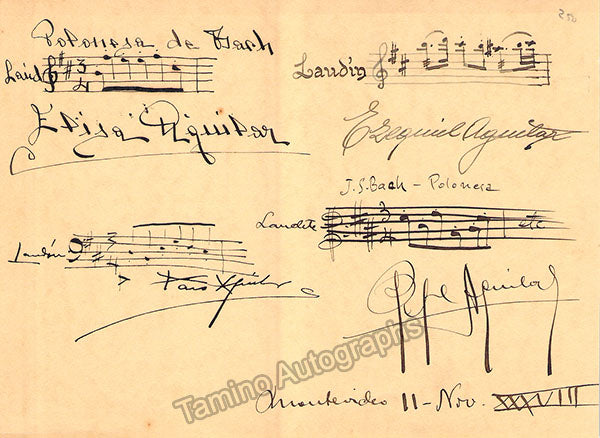 Polonesa de Bach
Laúd
Elisa Aguilar
Laudín
Ezequiel Aguilar
J.S. Bach - Polonesa
Laudete
etc
Pepe Aguilar
Laudón
Paco Aguilar
Montevideo 11 - Nov. XXXVIII
Tamino Autographs